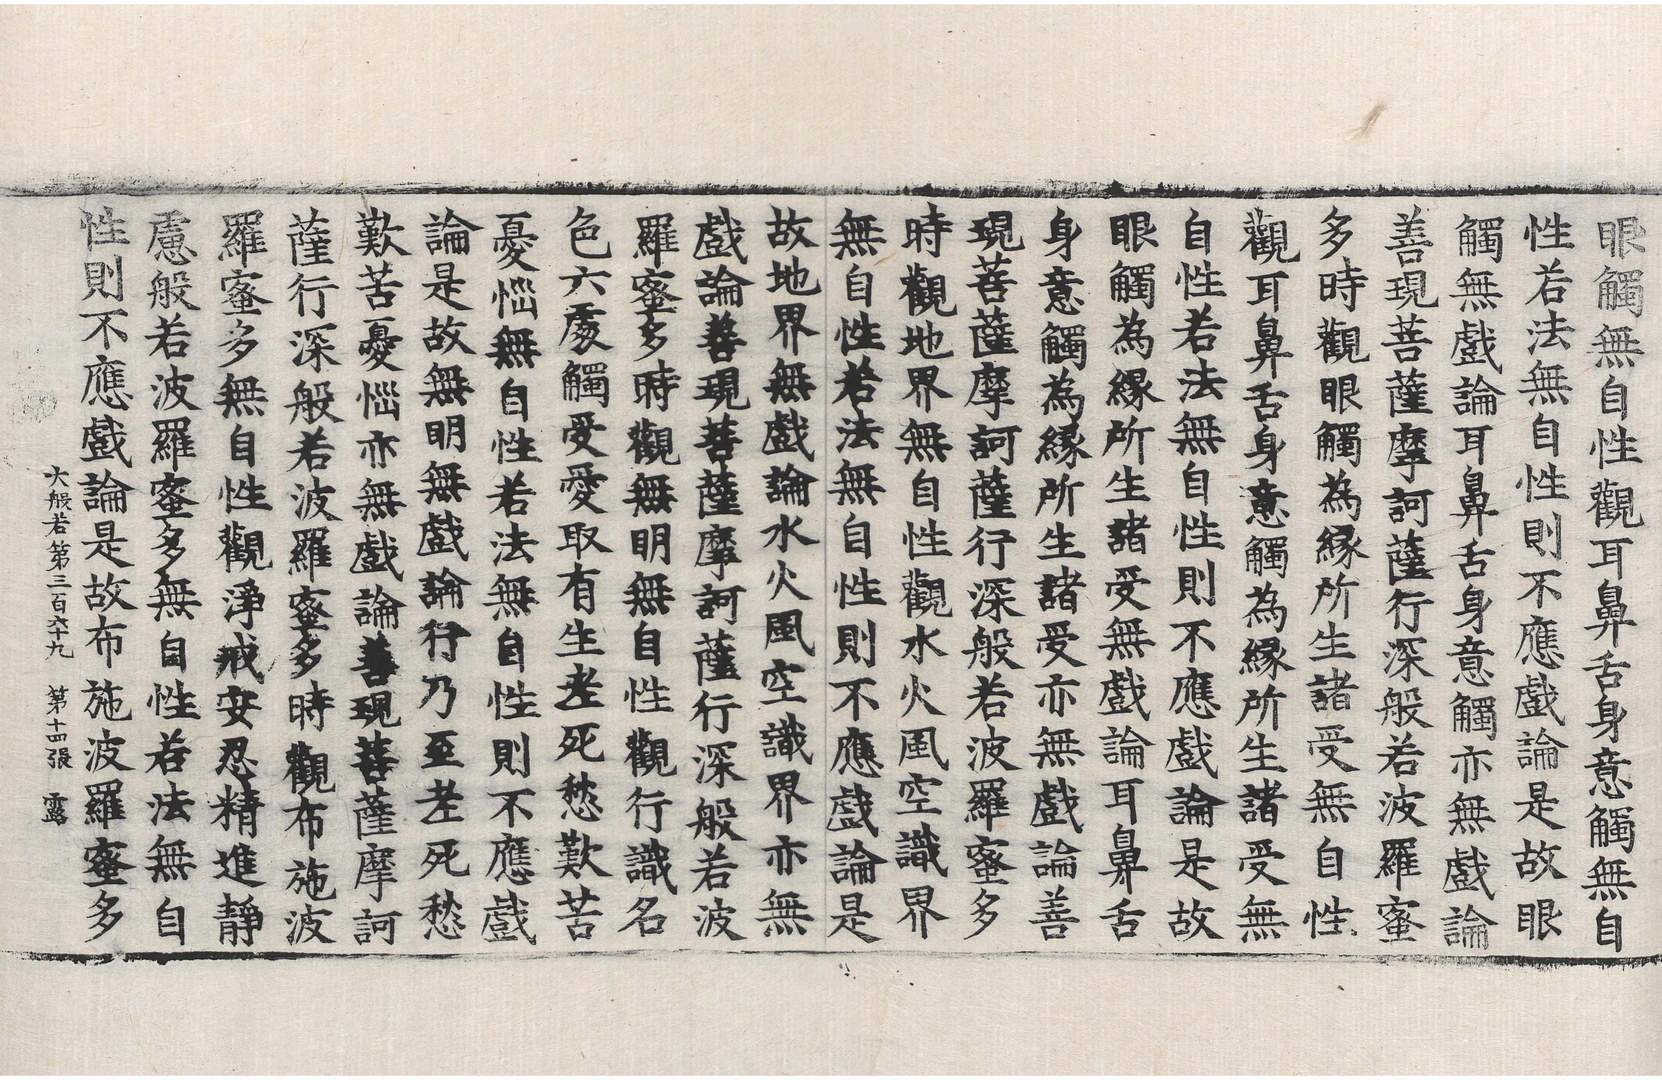 眼觸無自性觀耳鼻舌身意觸無自
性若法無自性則不應戲論是故眼
觸無戲論耳鼻舌身意觸亦無戲論
善現菩薩摩訶薩行深般若波羅蜜
多時觀眼觸為緣所生諸受無自性
觀耳鼻舌身意觸為緣所生諸受無
自性若法無自性則不應戲論是故
眼觸為緣所生諸受無戲論耳鼻舌
身意觸為緣所生諸受亦無戲論善
現菩薩摩訶薩行深般若波羅蜜多
時觀地界無自性觀水火風空識界
無自性若法無自性則不應戲論是
故地界無戲論水火風空識界亦無
戲論善現菩薩摩訶薩行深般若波
羅蜜多時觀無明無自性觀行識名
色六處觸受愛取有生老死愁歎苦
憂惱無自性若法無自性則不應戲
論是故無明無戲論行乃至老死愁
歎苦憂惱亦無戲論善現菩薩摩訶
薩行深般若波羅蜜多時觀布施波
羅蜜多無自性觀淨戒安忍精進靜
慮般若波羅蜜多無自性若法無自
性則不應戲論是故布施波羅蜜多
大般若第三百六十九 第十四張 露